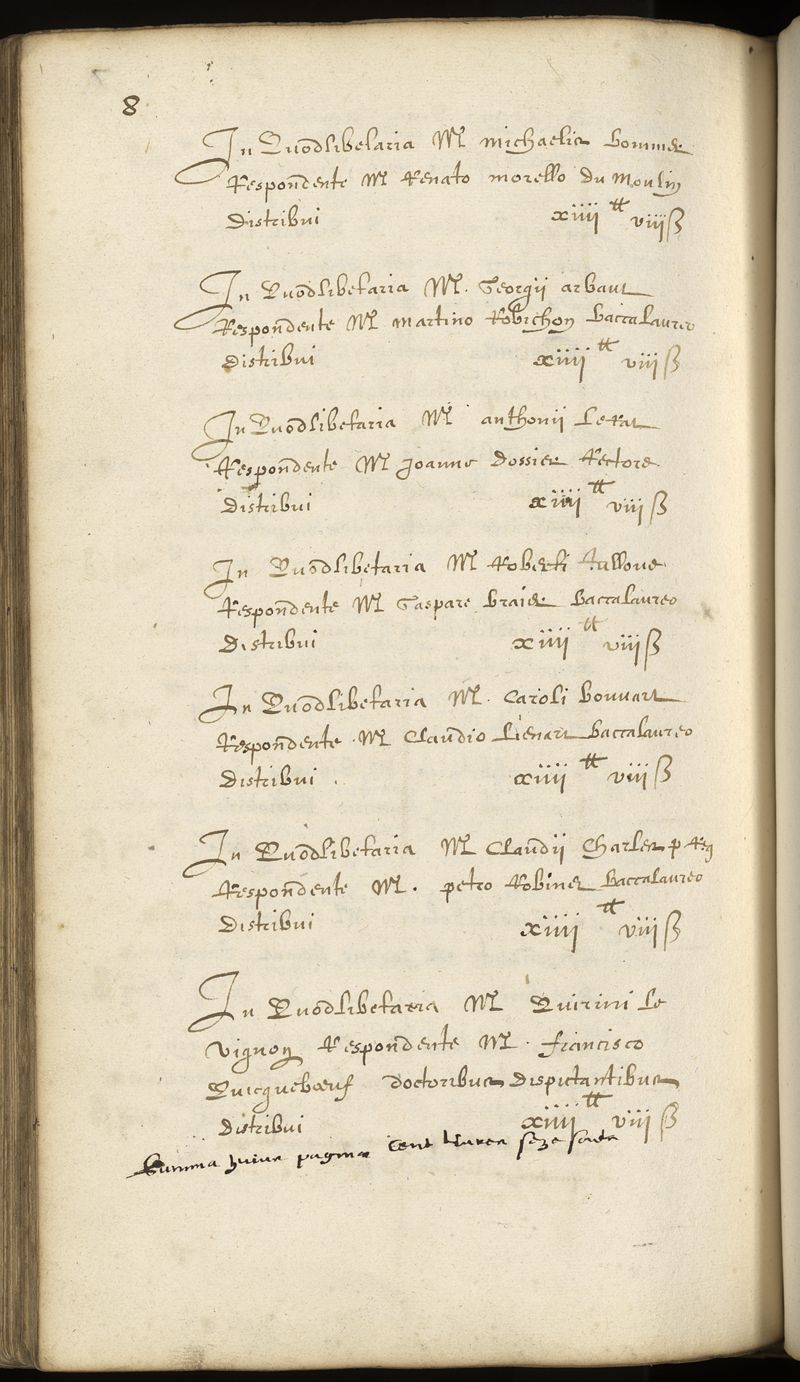 8
In Quodlibetaria Mri michaelis Bommer
Respondente Mro Renato morello du Moulin
Distribui xiiii tt viii ß
In Quodlibetaria Mri Georgii arbaut
Respondente Mro martino Robichon Baccalaureo
Distribui xiiii tt viii ß
In Quodlibetaria Mri anthonii Le Rat
Respondente Mro Joanne Dossier Rectore
Distribui xiiii tt viii ß
In Quodlibetaria Mri Roberti Tullone
Respondente Mro Gaspare Braier Baccalaureo
Distribui xiiii tt viii ß
In Quodlibetaria Mri Caroli Bouvart
Respondente Mro Claudio Lienart Baccalaureo
Distribui xiiii tt viii ß
In Quodlibetaria Mri Claudii Charles
Respondente Mro petro Robinet Baccalaureo
Distribui xiiii tt viii ß
In Quodlibetaria Mri Quirini le
vignon Respondente Mro francisco
Quicqueboeuf doctoribus Disputantibus
Distribui xiiii tt viii ß
Summa huius paginae Cent livres seze soulz